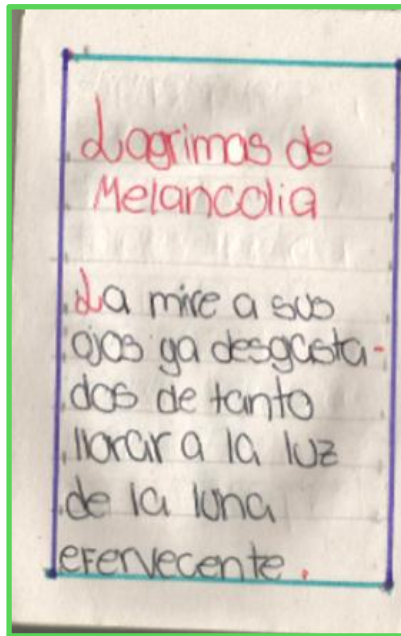 Lagrimas de
Melancolia
La mire a sus
ojos ya desgasta-
dos de tanto
llorar a la luz
de la luna
efervecente.